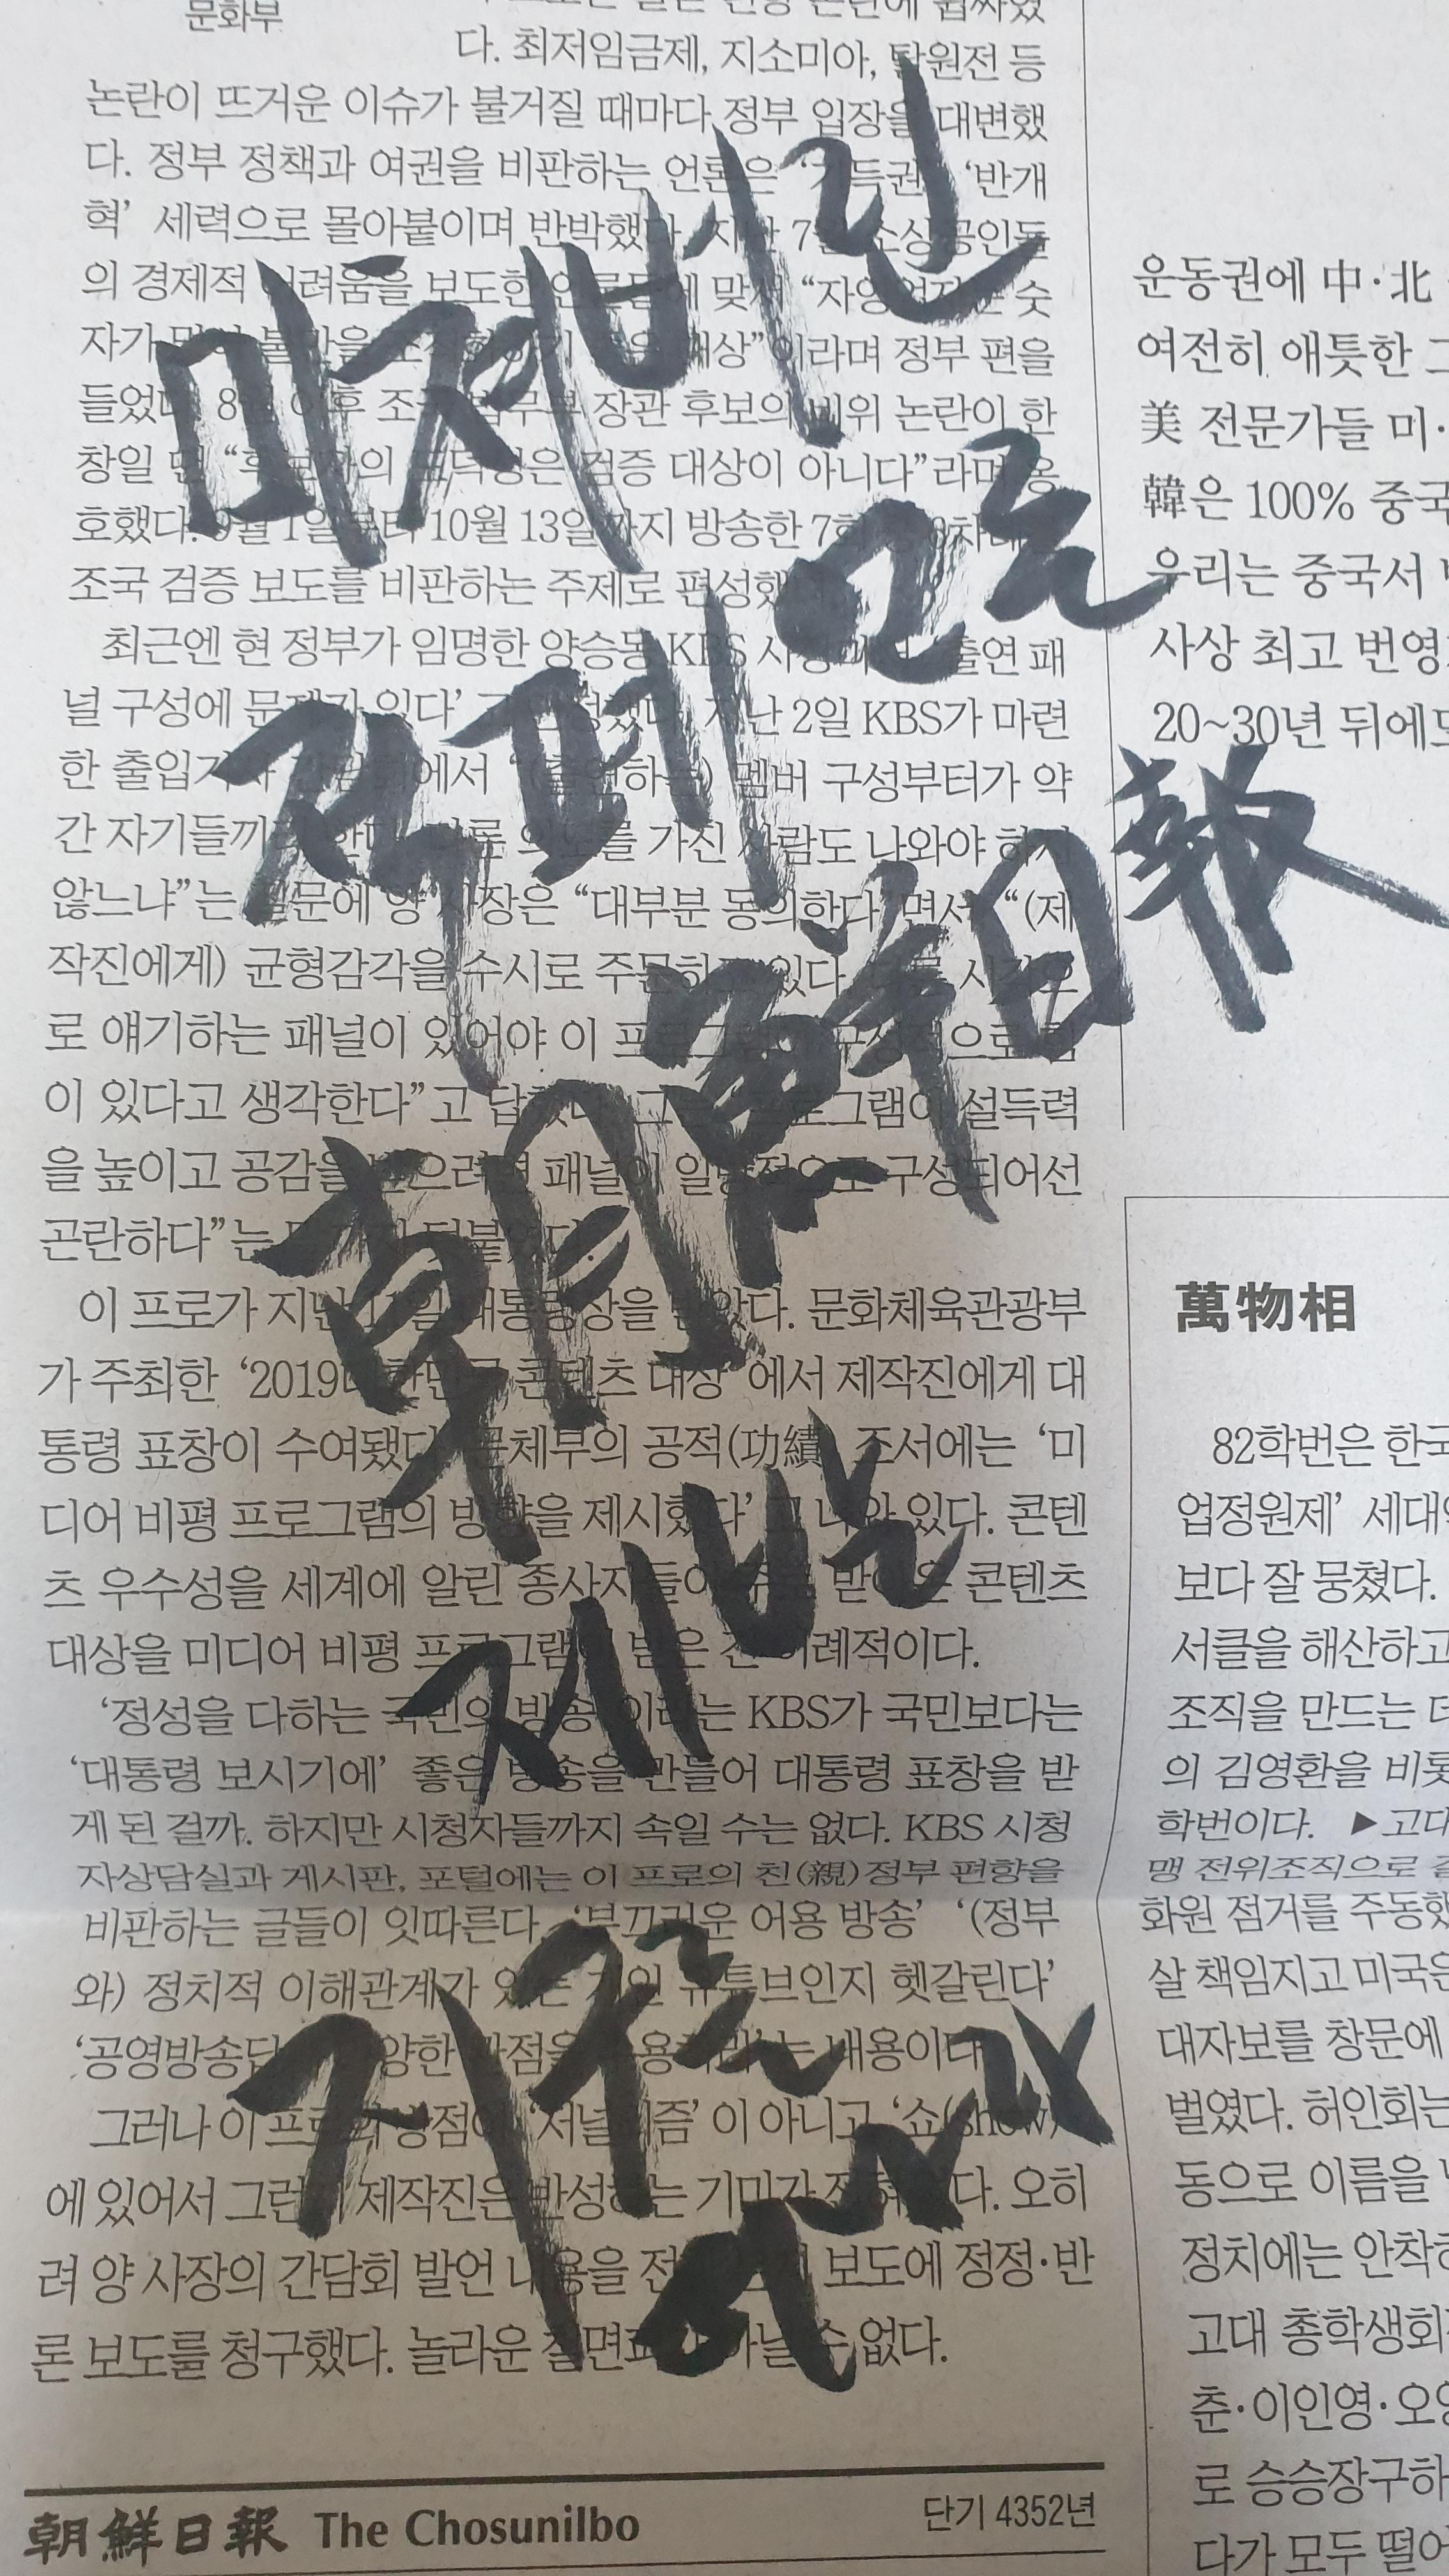 문화부
다. 최저임금제, 지소미아, 탈원전 등
논란이 뜨거운 이슈가 불거질 때마다 정부 입장을 대변했
다. 정부 정책과 여권을 비판하는 언론은 ‘기득권’ ‘반개
혁’ 세력으로 몰아붙이며 반박했다. 지난 7월 소상공인들
의 경제적 어려움을 보도한 언론들에 맞서 “자영업자는 숫
자가 많아 불만을 대상”이라며 정부 편을
들었다. 8월 이후 조국 법무부 장관 후보의 비위 논란이 한
창일 땐 “후보자의 도덕성은 검증 대상이 아니다”라며 옹
호했다. 9월 1일부터 10월 13일까지 방송한 7회
조국 검증 보도를 비판하는 주제로 편성했
최근엔 현 정부가 임명한 양승동 KBS 출연 패
널 구성에 문제가 있다’고 지난 2일 KBS가 마련
한 출입기자 에서 “(출연하는) 멤버 구성부터가 약
간 자기들끼리 를 가진 사람도 나와야 하지
않느냐”는 질문에 양 사장은 “대부분 동의한다”면서 “(제
작진에게) 균형감각을 수시로 주문하고 있다. 다른 시각으
로 얘기하는 패널이 있어야 이 프로그램이 구성적으로 힘
이 있다고 생각한다”고 답했다. 그는 “프로그램이 설득력
을 높이고 공감을 얻으려면 패널이 일방적으로 구성되어선
곤란하다”는 덧붙였다.
이 프로가 지난 11일 대통령상을 받았다. 문화체육관광부
가 주최한 ‘2019 대한민국 콘텐츠 대상’에서 제작진에게 대
통령 표창이 수여됐다. 문체부의 공적(功績) 조서에는 ‘미
디어 비평 프로그램의 방향을 제시했다’고 나와 있다. 콘텐
츠 우수성을 세계에 알린 종사자들이 주로 받아온 콘텐츠
대상을 미디어 비평 프로그램이 받은 건 이례적이다.
‘정성을 다하는 국민의 방송’이라는 KBS가 국민보다는
‘대통령 보시기에’ 좋은 방송을 만들어 대통령 표창을 받
게 된 걸까. 하지만 시청자들까지 속일 수는 없다. KBS 시청
자상담실과 게시판, 포털에는 이 프로의 친(親)정부 편향을
비판하는 글들이 잇따른다. ‘부끄러운 어용 방송’ ‘(정부
와) 정치적 이해관계가 있는 개인 유튜브인지 헷갈린다’
‘공영방송답게 다양한 관점을 수용하라’는 내용이다.
그러나 이 프로의 방점이 ‘저널리즘’이 아니고 ‘쇼(show)’
에 있어서 그런지 제작진은 반성하는 기미가 전혀 없다. 오히
려 양 사장의 간담회 발언 내용을 전한 보도에 정정·반
론 보도를 청구했다. 놀라운 철면피가 아닐 수 없다.
朝鮮日報 The Chosunilbo
단기 4352년
운동권에 中·北
여전히 애틋한 그
美 전문가들 미·
韓은 100% 중국
우리는 중국서
사상 최고 번영
20~30년 뒤에도
萬物相
82학번은 한국
업정원제’ 세대
보다 잘 뭉쳤다.
서클을 해산하고
조직을 만드는 데
의 김영환을 비롯
학번이다. ▶고대
맹 전위조직으로
화원 점거를 주동했
살 책임지고 미국은
대자보를 창문에
벌였다. 허인회는
동으로 이름을
정치에는 안착하
고대 총학생회
춘·이인영·오영
로 승승장구하
다가 모두 떨어
미쳐버린
오른
적폐
朝鮮日報
제발